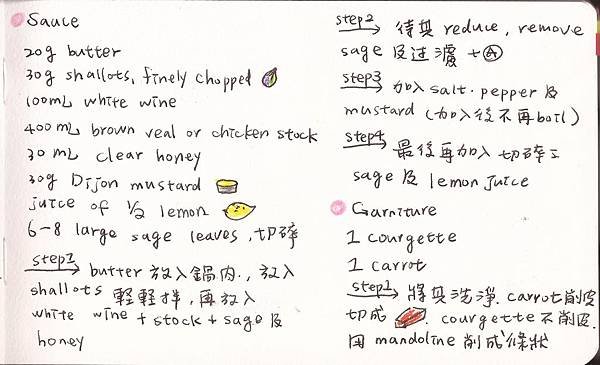 Sauce
20g butter
30g shallots, finely chopped
100mL white wine
400 mL brown veal or chicken stock
30 mL clear honey
30g Dijon mustard
juice of 1/2 lemon
6-8 large sage leaves, 切碎
step1 → butter 放入鍋內, 放入
shallots 輕輕拌, 再放入
white wine + stock + sage 及
honey
step2 → 待其 reduce, remove
sage 及过濾
step3 → 加入 salt. pepper 及
mustard (加入後不再boil)
step4 → 最後再加入 切碎
sage 及 lemon juice
Garniture
1 courgette
1 carrot
step1 → 將其洗淨. carrot 削皮
切成 . courgette 不削皮.
用 mandoline 削成條狀